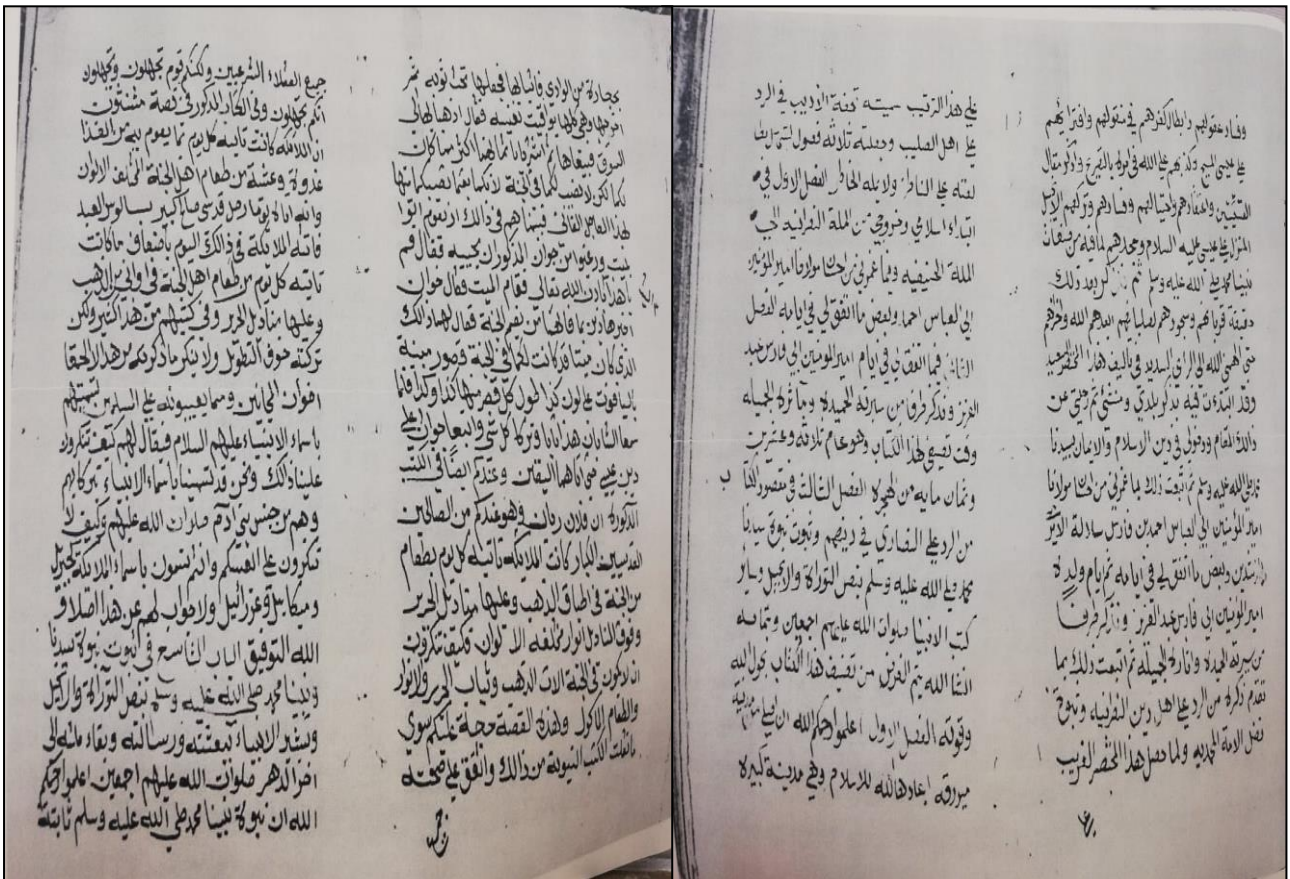 وفساد عقولهم وابطال كفرهم في منقولهم وافترايهم
على عيسى المسيح وكذبهم على الله
القسيسين وفسادهم وتركهم الانجيل
المنزل على عيسى عليه السلام وجحدهم لما فيه من صفات
نبينا محمد صلى الله عليه وسلم ثم بعد ذلك
قربانهم وسجودهم لصلبانهم ابعدهم الله واخزاهم
حتى الهمني الله الى الراي السديد في تاليف هذا المختصر
وقد ابتدات فيه بذكر بلدي ومنشئي ثم رحلتي عن
ذالك المقام ودخولي في دين الاسلام والايمان بسيدنا
صلى الله عليه وسلم ثم اتبعت ذلك بما غمرني من احسان مولانا
امير المؤمنين ابي العباس احمد بن فارس سلالة
الراشدين وبعض ما اتفق لي في ايامه ثم ايام ولده
امير المؤمنين ابي فارس عبد العزيز
من سيرته الحميدة واثاره الجميلة ثم اتبعت ذلك بما
تقدم ذكره من الرد على اهل دين النصرانية وثبوت
فضل الامة المحمدية ولما حصل هذا المختصر الغريب
على هذا الترتيب سميته تحفة الاديب في الرد
على اهل الصليب وجعلته ثلاثة فصول لتسهل
لغته على الناظر ولا يمله الخاطر الفصل الاول في
ابتداء اسلامي وخروجي من الملة النصرانية الى
الملة الحنيفيه وفيما غمرني من احسان مولانا امير المؤمنين
ابي العباس احمد وبعض ما اتفق لي في ايامه الفصل
الثاني فيما اتفق لي في ايام امير المومنين ابي فارس عبد
العزيز ونذكر طرفا من سايرته الحميدة وماثره الجميله
وقت تصنيفي لهذا الكتاب وهو عام ثلاثه وعشرين
وثمان مايه من الهجرة الفصل الثالث في مقصود الكتا
ب
من الرد على النصارى في دينهم وثبوت نبوة سيدنا
محمد صلى الله عليه وسلم بنص التوراة والانجيل وساير
كتب الانبيا صلوات الله عليهم اجمعين وبتمامه
ان شا الله يتم الغرض من تصنيف هذا الكتاب بحول الله
وقوته الفصل الاول اعلموا رحمكم الله ان
ميورقه اعادها الله للاسلام وهي مدينة كبيره
بحجارة من الوادي فاتيا بها فجعلها تحت ثوبه ثم
اخرجها وهي كلها يواقيت نفيسه فقال اذهبا بها الى
السوق فبيعاها ثم اشتريا بثمنها اكثر مما كان
لكما لكن لا نصيب لكما في الجنة لانكما بعتما نصيبكما منها
بهذا العاجل الفاني فبينما هم في ذالك اذ بقوم اتوا
بميت ورغبوا من جوان المذكور ان يحييه فقال قم
يا هذا باذن الله تعالى فقام الميت فقال جوان
اخبر هاذين بما فاتهما من نعيم الجنة فقال لهما ذالك
الذي كان ميتا قد كانت لكما في الجنة قصور مبنية
بالياقوت على لون كذا طول كل قصر منها كذا وكذا فلما
سمعا الشابان هذا تابا وتركا كل شي واتبعا جوان على
دين عيسى حتى اتاهما اليقين وعندكم ايضا في الكتب
المذكورة ان فلان وهو عندكم من الصالحين
القديسين الكبار كانت الملائكة تاتيه كل يوم بطعام
من الجنة في اطباق الذهب وعليها مناديل الحرير
وفوق المناديل انوار مختلفه الالوان فكيف تنكرون
ان لا يكون في الجنة الات الذهب وثياب الحرير والانوار
والطعام الاكول وهذه القصة حجة عليكم سوى
ما نقلت الكتب النبوية من ذالك واتفق على صحته
جميع العقلاء الشرعيين ولكنكم قوم تجهلون وتجهلون
انكم تجهلون وفي الكتاب المذكور في قصة
ان الملائكة كانت تاتيه كل يوم بما يقوم به من الغذا
غدوة وعشية من طعام اهل الجنة المختلف الالوان
وانه اتاه يوما رجل قديس صالح كبير بسالوس العبد
فاتته الملائكة في ذالك اليوم باضعاف ما كانت
تاتيه كل يوم من طعام اهل الجنة في اواني من الذهب
وعليها مناديل الحرير وفي كتبهم من هذا كثير ولكن
تركته خوف التطويل ولا ينكر ما ذكرتكم من هذا الا الحمقا
اخوان المجانين ومما يعيبونه على المسلمين تسميتهم
باسماء الانبياء عليهم السلام فيقال لهم كيف تنكرون
علينا ذالك ونحن قد تسمينا باسماء الانبياء تبركا بهم
وهم من جنس بني ادم صلوات الله عليهم وكيف لا
تنكرون على انفسكم وانتم تسمون باسماء الملائكة كجبريل
وميكاييل وعزراييل ولا جواب لهم عن هذا اصلا و
الله التوفيق الباب التاسع في ثبوت نبوة سيدنا
ونبينا محمد صلى الله عليه وسلم بنص التوراة والانجيل
وتبشير الانبياء ببعثته ورسالته وبقاء ملته الى
اخر الدهر صلوات الله عليهم اجمعين اعلموا رحمكم
الله ان نبوة نبينا محمد صلى الله عليه وسلم ثابتة